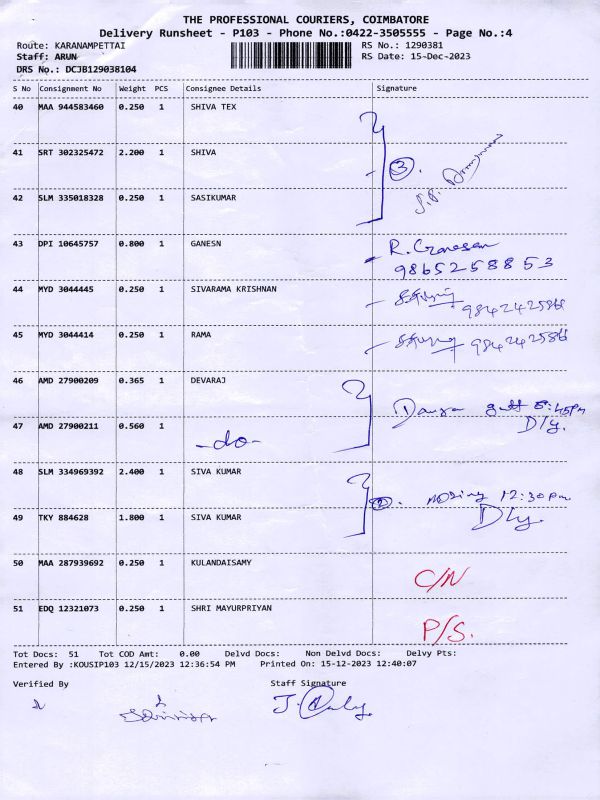 THE PROFESSIONAL COURIERS, COIMBATORE
Delivery Runsheet - P103 - Phone No.:0422-3505555 - Page No.:4
Route: KARANAMPETTAI RS No.: 1290381
Staff: ARUN RS Date: 15-Dec-2023
DRS No.: DCJB129038104
S No Consignment No Weight PCS Consignee Details Signature
40 MAA 944583460 0.250 1 SHIVA TEX
41 SRT 302325472 2.200 1 SHIVA 3
42 SLM 335018328 0.250 1 SASIKUMAR
43 DPI 10645757 0.800 1 GANESN R. Ganesan
9865258853
44 MYD 3044445 0.250 1 SIVARAMA KRISHNAN
45 MYD 3044414 0.250 1 RAMA
46 AMD 27900209 0.365 1 DEVARAJ
47 AMD 27900211 0.560 1 -do- Dly.
48 SLM 334969392 2.400 1 SIVA KUMAR 2. 12:30pm
49 TKY 884628 1.800 1 SIVA KUMAR Dly.
50 MAA 287939692 0.250 1 KULANDAISAMY C/N
51 EDQ 12321073 0.250 1 SHRI MAYURPRIYAN P/S.
Tot Docs: 51 Tot COD Amt: 0.00 Delvd Docs: Non Delvd Docs: Delvy Pts:
Entered By :KOUSIP103 12/15/2023 12:36:54 PM Printed On: 15-12-2023 12:40:07
Verified By Staff Signature